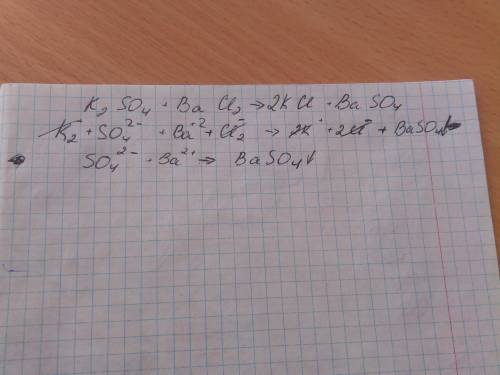 K₂SO₄ + BaCl₂ → 2KCl + BaSO₄
K₂⁺ + SO₄²⁻ + Ba⁺² + Cl₂⁻ → 2K⁺ + 2Cl⁻ + BaSO₄↓
SO₄²⁻ + Ba²⁺ → BaSO₄↓